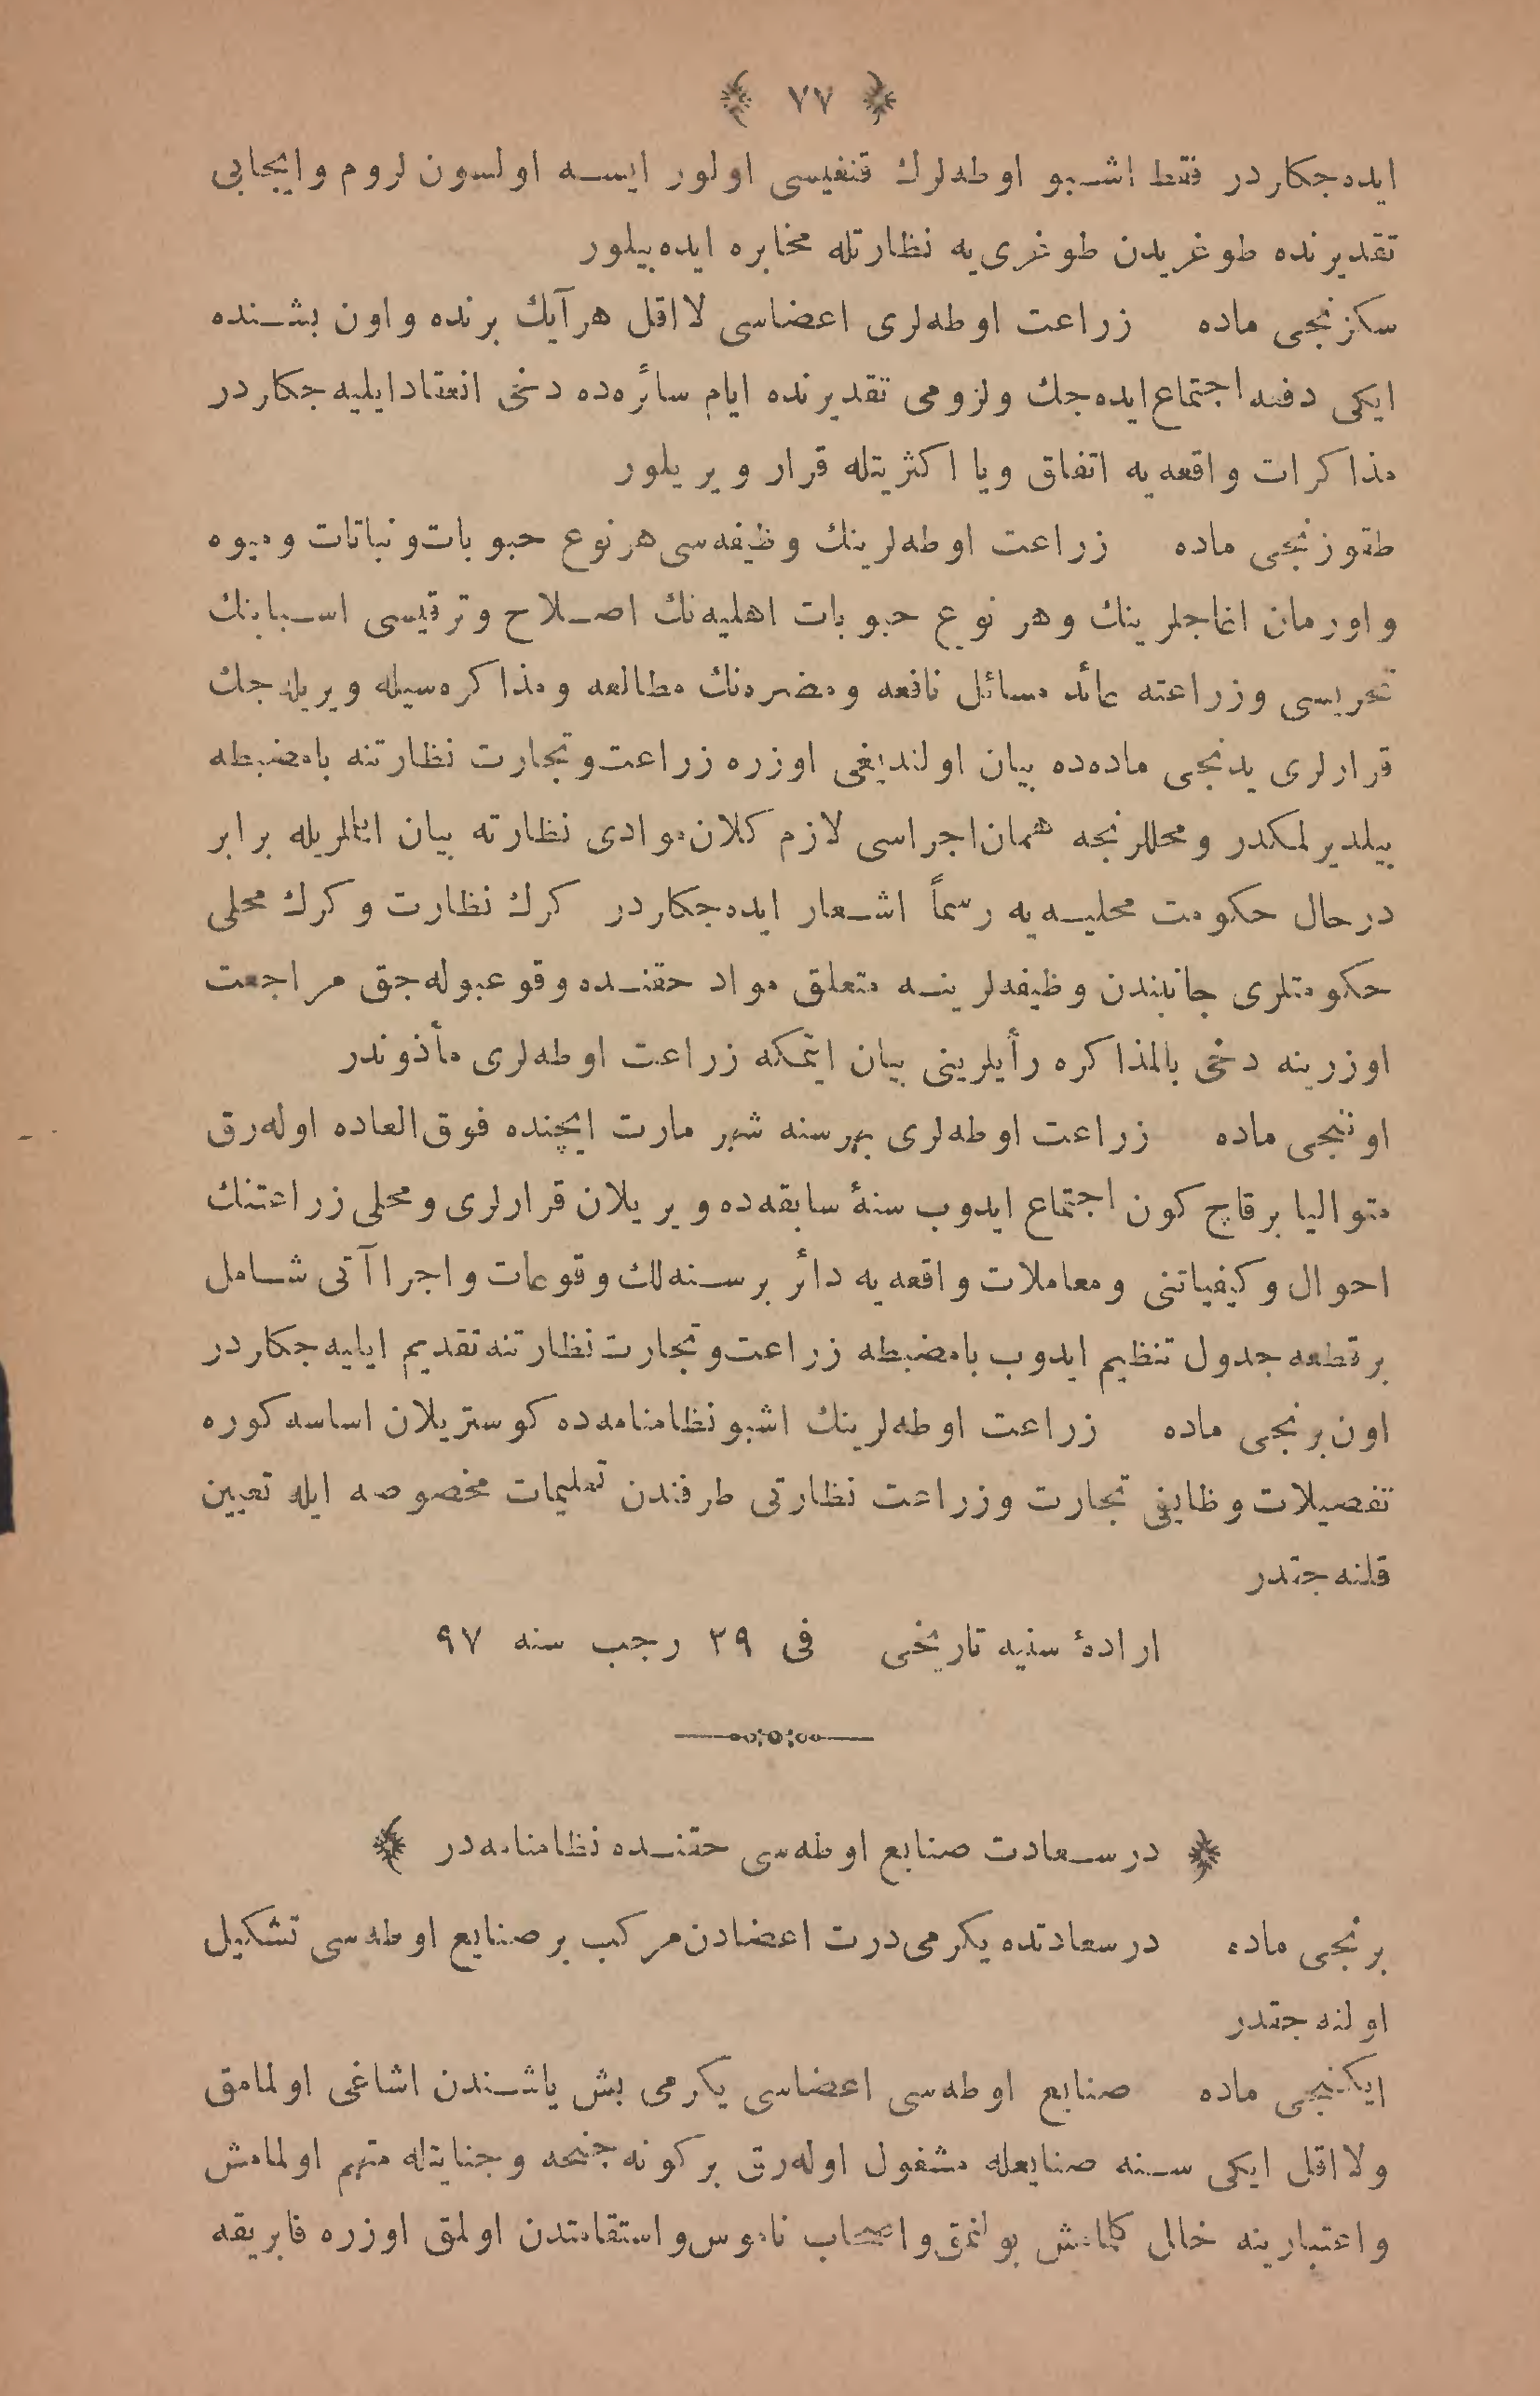 ﴿ ٧٧ ﴾
ایده‌جکاردر فقط اشبو اوطه‌لرك قنغیسی اولور ایسه اولسون لزوم وایجابی
تقدیرنده طوغریدن طوغری‌یه نظارتله مخابره ایده‌بیلور
سکزنجی ماده زراعت اوطه‌لری اعضاسی لااقل هرآیك برنده واون بشنده
ایکی دفعه اجتماع ایده‌جك ولزومی تقدیرنده ایام سائره‌ده دخی انعقاد ایلیه‌جکلردر
مذاکرات واقعه‌یه اتفاق ویا اکثریتله قرار ویریلور
طقوزنجی ماده زراعت اوطه‌لرینك وظیفه‌سی هرنوع حبوبات ونباتات ومیوه
واورمان اغاجلرینك وهر نوع حبوبات اهلیه‌نك اصلاح وترقیسی اسبابنك
تحریسی وزراعته عائد مسائل نافعه ومضره‌نك مطالعه ومذاکره‌سیله ویریله‌جك
قرارلری یدنجی ماده‌ده بیان اولندیغی اوزره زراعت وتجارت نظارتنه بامضبطه
بیلدیرلمکدر ومحللرنجه همان اجراسی لازم کلان موادی نظارته بیان ایتملریله برابر
درحال حکومت محلیه‌یه رسماً اشعار ایده‌جکلردر کرك نظارت وکرك محلی
حکومتلری جانبندن وظیفه‌لرینه متعلق مواد حقنده وقوعبوله‌جق مراجعت
اوزرینه دخی بالمذاکره رأیلرینی بیان ایتمکه زراعت اوطه‌لری مأذوندر
اوننجی ماده زراعت اوطه‌لری بهرسنه شهر مارت ایچنده فوق‌العاده اوله‌رق
متوالیا برقاچ کون اجتماع ایدوب سنهٔ سابقه‌ده ویریلان قرارلری ومحلی زراعتنك
احوال وکیفیاتنی ومعاملات واقعه‌یه دائر برسنه‌لك وقوعات واجراآتی شامل
برقطعه جدول تنظیم ایدوب بامضبطه زراعت وتجارت نظارتنه تقدیم ایلیه‌جکلردر
اون‌برنجی ماده زراعت اوطه‌لرینك اشبو نظامنامه‌ده کوستریلان اساسه کوره
تفصیلات وظایفی تجارت وزراعت نظارتی طرفندن تعلیمات مخصوصه ایله تعیین
قلنه‌جقدر
ارادهٔ سنیه تاریخی فی ٢٩ رجب سنه ٩٧
﴿ درسعادت صنایع اوطه‌سی حقنده نظامنامه‌در ﴾
برنجی ماده درسعادتده یکرمی‌درت اعضادن مرکب برصنایع اوطه‌سی تشکیل
اولنه‌جقدر
ایکنجی ماده صنایع اوطه‌سی اعضاسی یکرمی بش یاشندن اشاغی اولمامق
ولااقل ایکی سنه صنایعله مشغول اوله‌رق برکونه جنحه وجنایتله متهم اولمامش
واعتبارینه خالل کلمامش بولنمق واصحاب ناموس واستقامتدن اولمق اوزره فابریقه